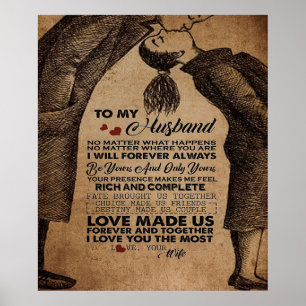 TO MY
Husband
NO MATTER WHAT HAPPENS
NO MATTER WHERE YOU ARE
I WILL FOREVER ALWAYS
Be Yours And Only Yours
YOUR PRESENCE MAKES ME FEEL
RICH AND COMPLETE
FATE BROUGHT US TOGETHER
CHOICE MADE US FRIENDS
DESTINY MADE US COUPLE
LOVE MADE US
FOREVER AND TOGETHER
I LOVE YOU THE MOST
LOVE, YOUR
Wife